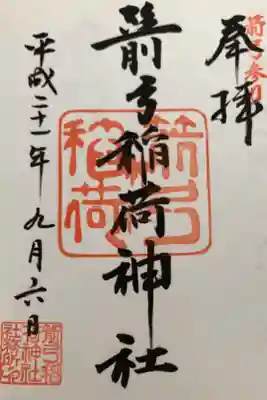 奉拝
箭弓稲荷神社
箭弓
稲荷
平成二十一年九月六日
箭弓稲
荷神社
社務所印